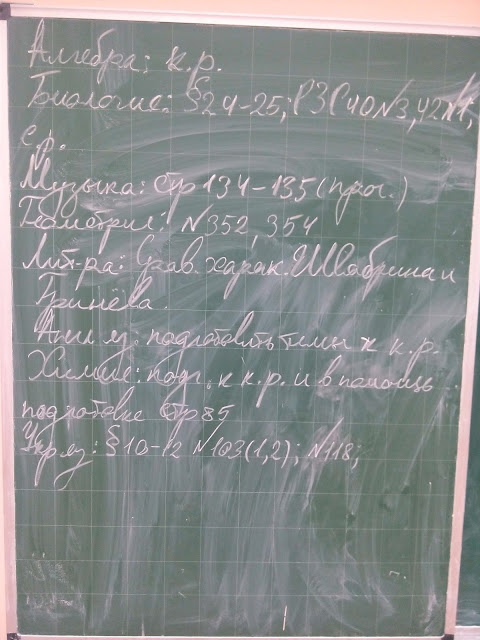 Алгебра: к.р.
Биология: §24-25; РЗС40N3, 42N1,
с.р.
Музыка: стр 134-135 (проч.)
Геометрия: N352, 354
Лит-ра: Срав. харак. Швабрина и
Гринёва.
Англ яз. подготовить темы к к.р.
Химия: подг. к к.р. и в помощь
подготовке стр 85
Укр яз: §10-12 N103(1,2); N118;